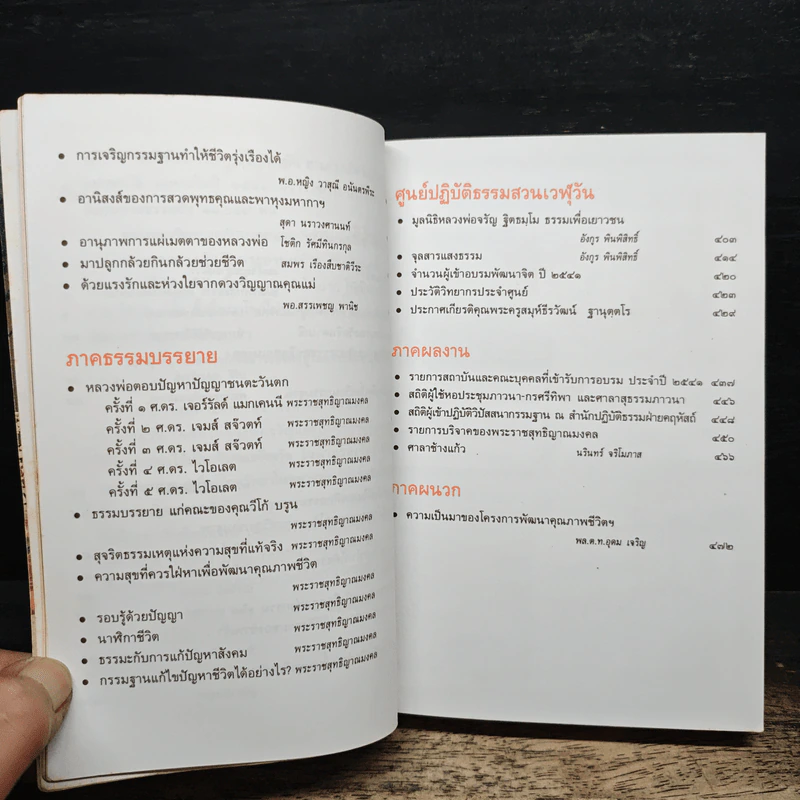 • การเจริญกรรมฐานทำให้ชีวิตรุ่งเรืองได้
พ.อ.หญิง วาสุณี อนันตรพีระ
• อานิสงส์ของการสวดพุทธคุณและพาหุงมหากาฯ
สุดา นราวงศานนท์
• อานุภาพการแผ่เมตตาของหลวงพ่อ โชติก รัศมีทินกรกุล
• มาปลูกกล้วยกินกล้วยช่วยชีวิต สมพร เรืองสืบชาติวีระ
• ด้วยแรงรักและห่วงใยจากดวงวิญญาณคุณแม่
พอ.สรรเพชญ พานิช
ภาคธรรมบรรยาย
• หลวงพ่อตอบปัญหาปัญญาชนตะวันตก
ครั้งที่ ๑ ศ.ดร. เจอร์รัลด์ แมกเคนนี พระราชสุทธิญาณมงคล
ครั้งที่ ๒ ศ.ดร. เจมส์ สจ๊วตท์ พระราชสุทธิญาณมงคล
ครั้งที่ ๓ ศ.ดร. เจมส์ สจ๊วตท์ พระราชสุทธิญาณมงคล
ครั้งที่ ๔ ศ.ดร. ไวโอเลต พระราชสุทธิญาณมงคล
ครั้งที่ ๕ ศ.ดร. ไวโอเลต พระราชสุทธิญาณมงคล
• ธรรมบรรยาย แก่คณะของคุณวีโก้ บรูน
พระราชสุทธิญาณมงคล
• สุจริตธรรมเหตุแห่งความสุขที่แท้จริง พระราชสุทธิญาณมงคล
• ความสุขที่ควรใฝ่หาเพื่อพัฒนาคุณภาพชีวิต
พระราชสุทธิญาณมงคล
• รอบรู้ด้วยปัญญา พระราชสุทธิญาณมงคล
• นาฬิกาชีวิต พระราชสุทธิญาณมงคล
• ธรรมะกับการแก้ปัญหาสังคม พระราชสุทธิญาณมงคล
• กรรมฐานแก้ไขปัญหาชีวิตได้อย่างไร? พระราชสุทธิญาณมงคล
ศูนย์ปฏิบัติธรรมสวนเวฬุวัน
• มูลนิธิหลวงพ่อจรัญ ฐิตธมฺโม ธรรมเพื่อเยาวชน
อังกูร พินพิสิทธิ์ ๔๐๓
• จุลสารแสงธรรม อังกูร พินพิสิทธิ์ ๔๑๔
• จำนวนผู้เข้าอบรมพัฒนาจิต ปี ๒๕๔๑ ๔๒๐
• ประวัติวิทยากรประจำศูนย์ ๔๒๓
• ประกาศเกียรติคุณพระครูสมุห์ธีรวัฒน์ ฐานุตฺตโร ๔๒๙
ภาคผลงาน
• รายการสถาบันและคณะบุคคลที่เข้ารับการอบรม ประจำปี ๒๕๔๑ ๔๓๗
• สถิติผู้ใช้หอประชุมภาวนา-กรศรีทิพา และศาลาสุธรรมภาวนา ๔๔๖
• สถิติผู้เข้าปฏิบัติวิปัสสนากรรมฐาน ณ สำนักปฏิบัติธรรมฝ่ายคฤหัสถ์ ๔๔๘
• รายการบริจาคของพระราชสุทธิญาณมงคล ๔๕๐
• ศาลาช้างแก้ว นรินทร์ จริโมภาส ๔๖๖
ภาคผนวก
• ความเป็นมาของโครงการพัฒนาคุณภาพชีวิตฯ
พล.ต.ท.อุดม เจริญ ๔๗๒